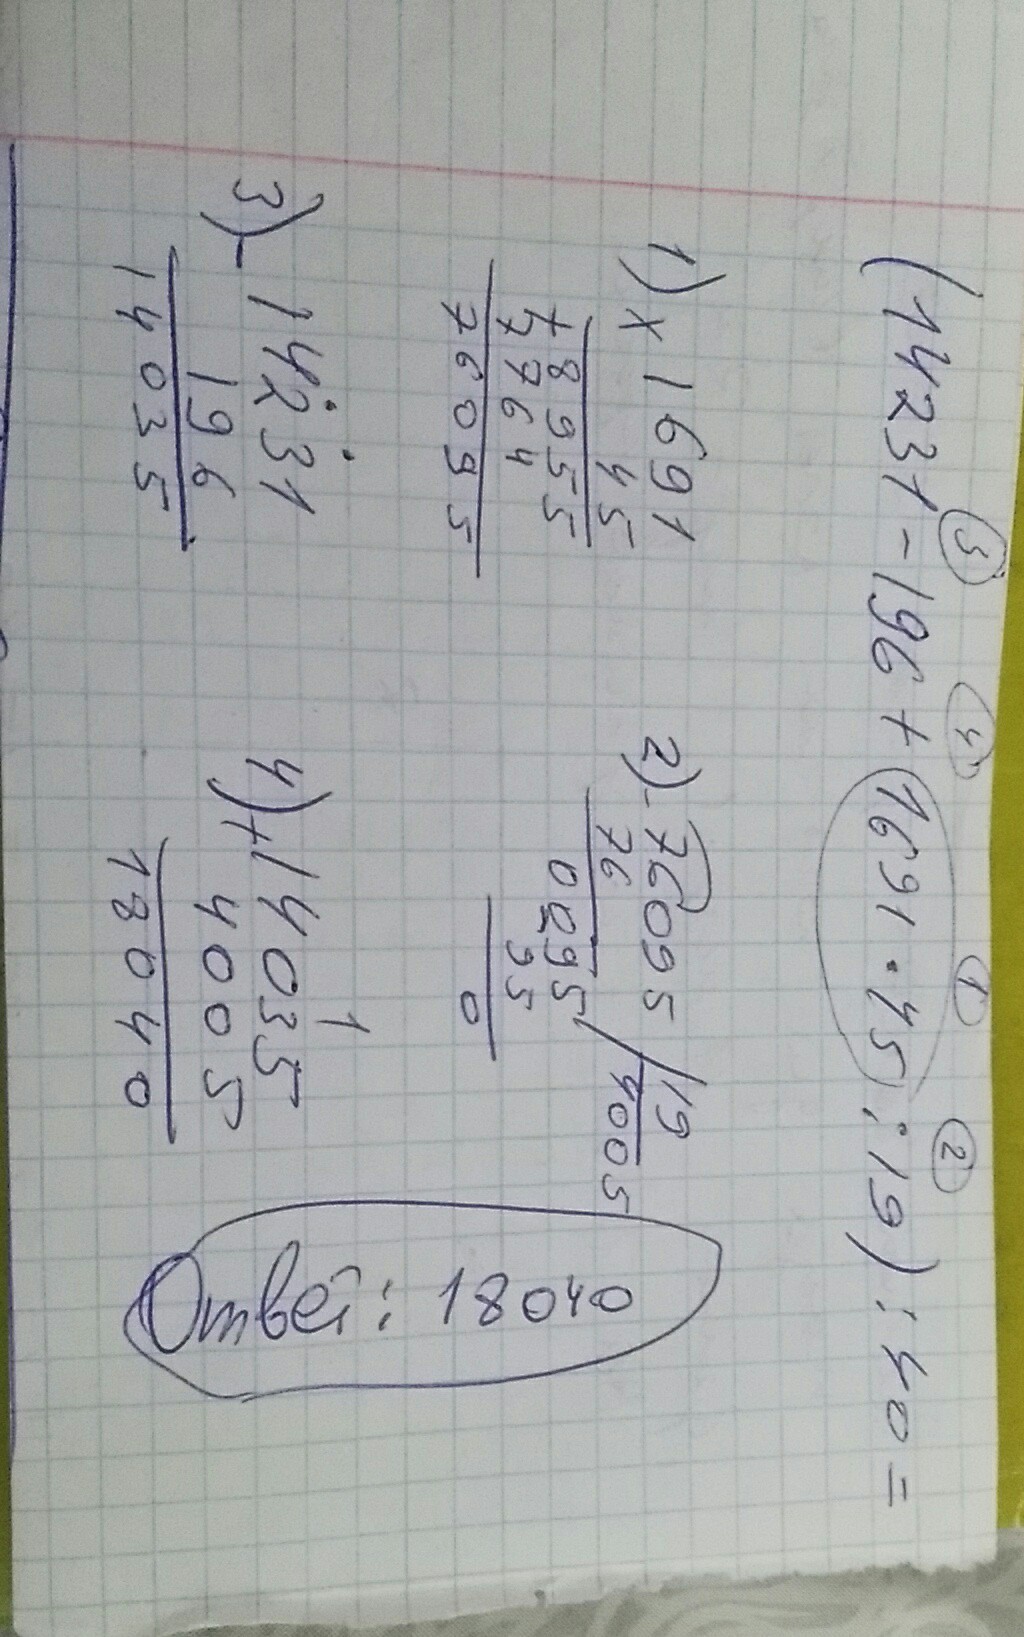 ③ ④ ① ②
(14231-196+1691·45:19):40=
1) × 1691
45
+ 8955
7764
76095
2) - 76095 | 19
76 4005
0095
95
0
3) - 14231
196
14035
4) + 14035
1
4005
18040
Ответ: 18040